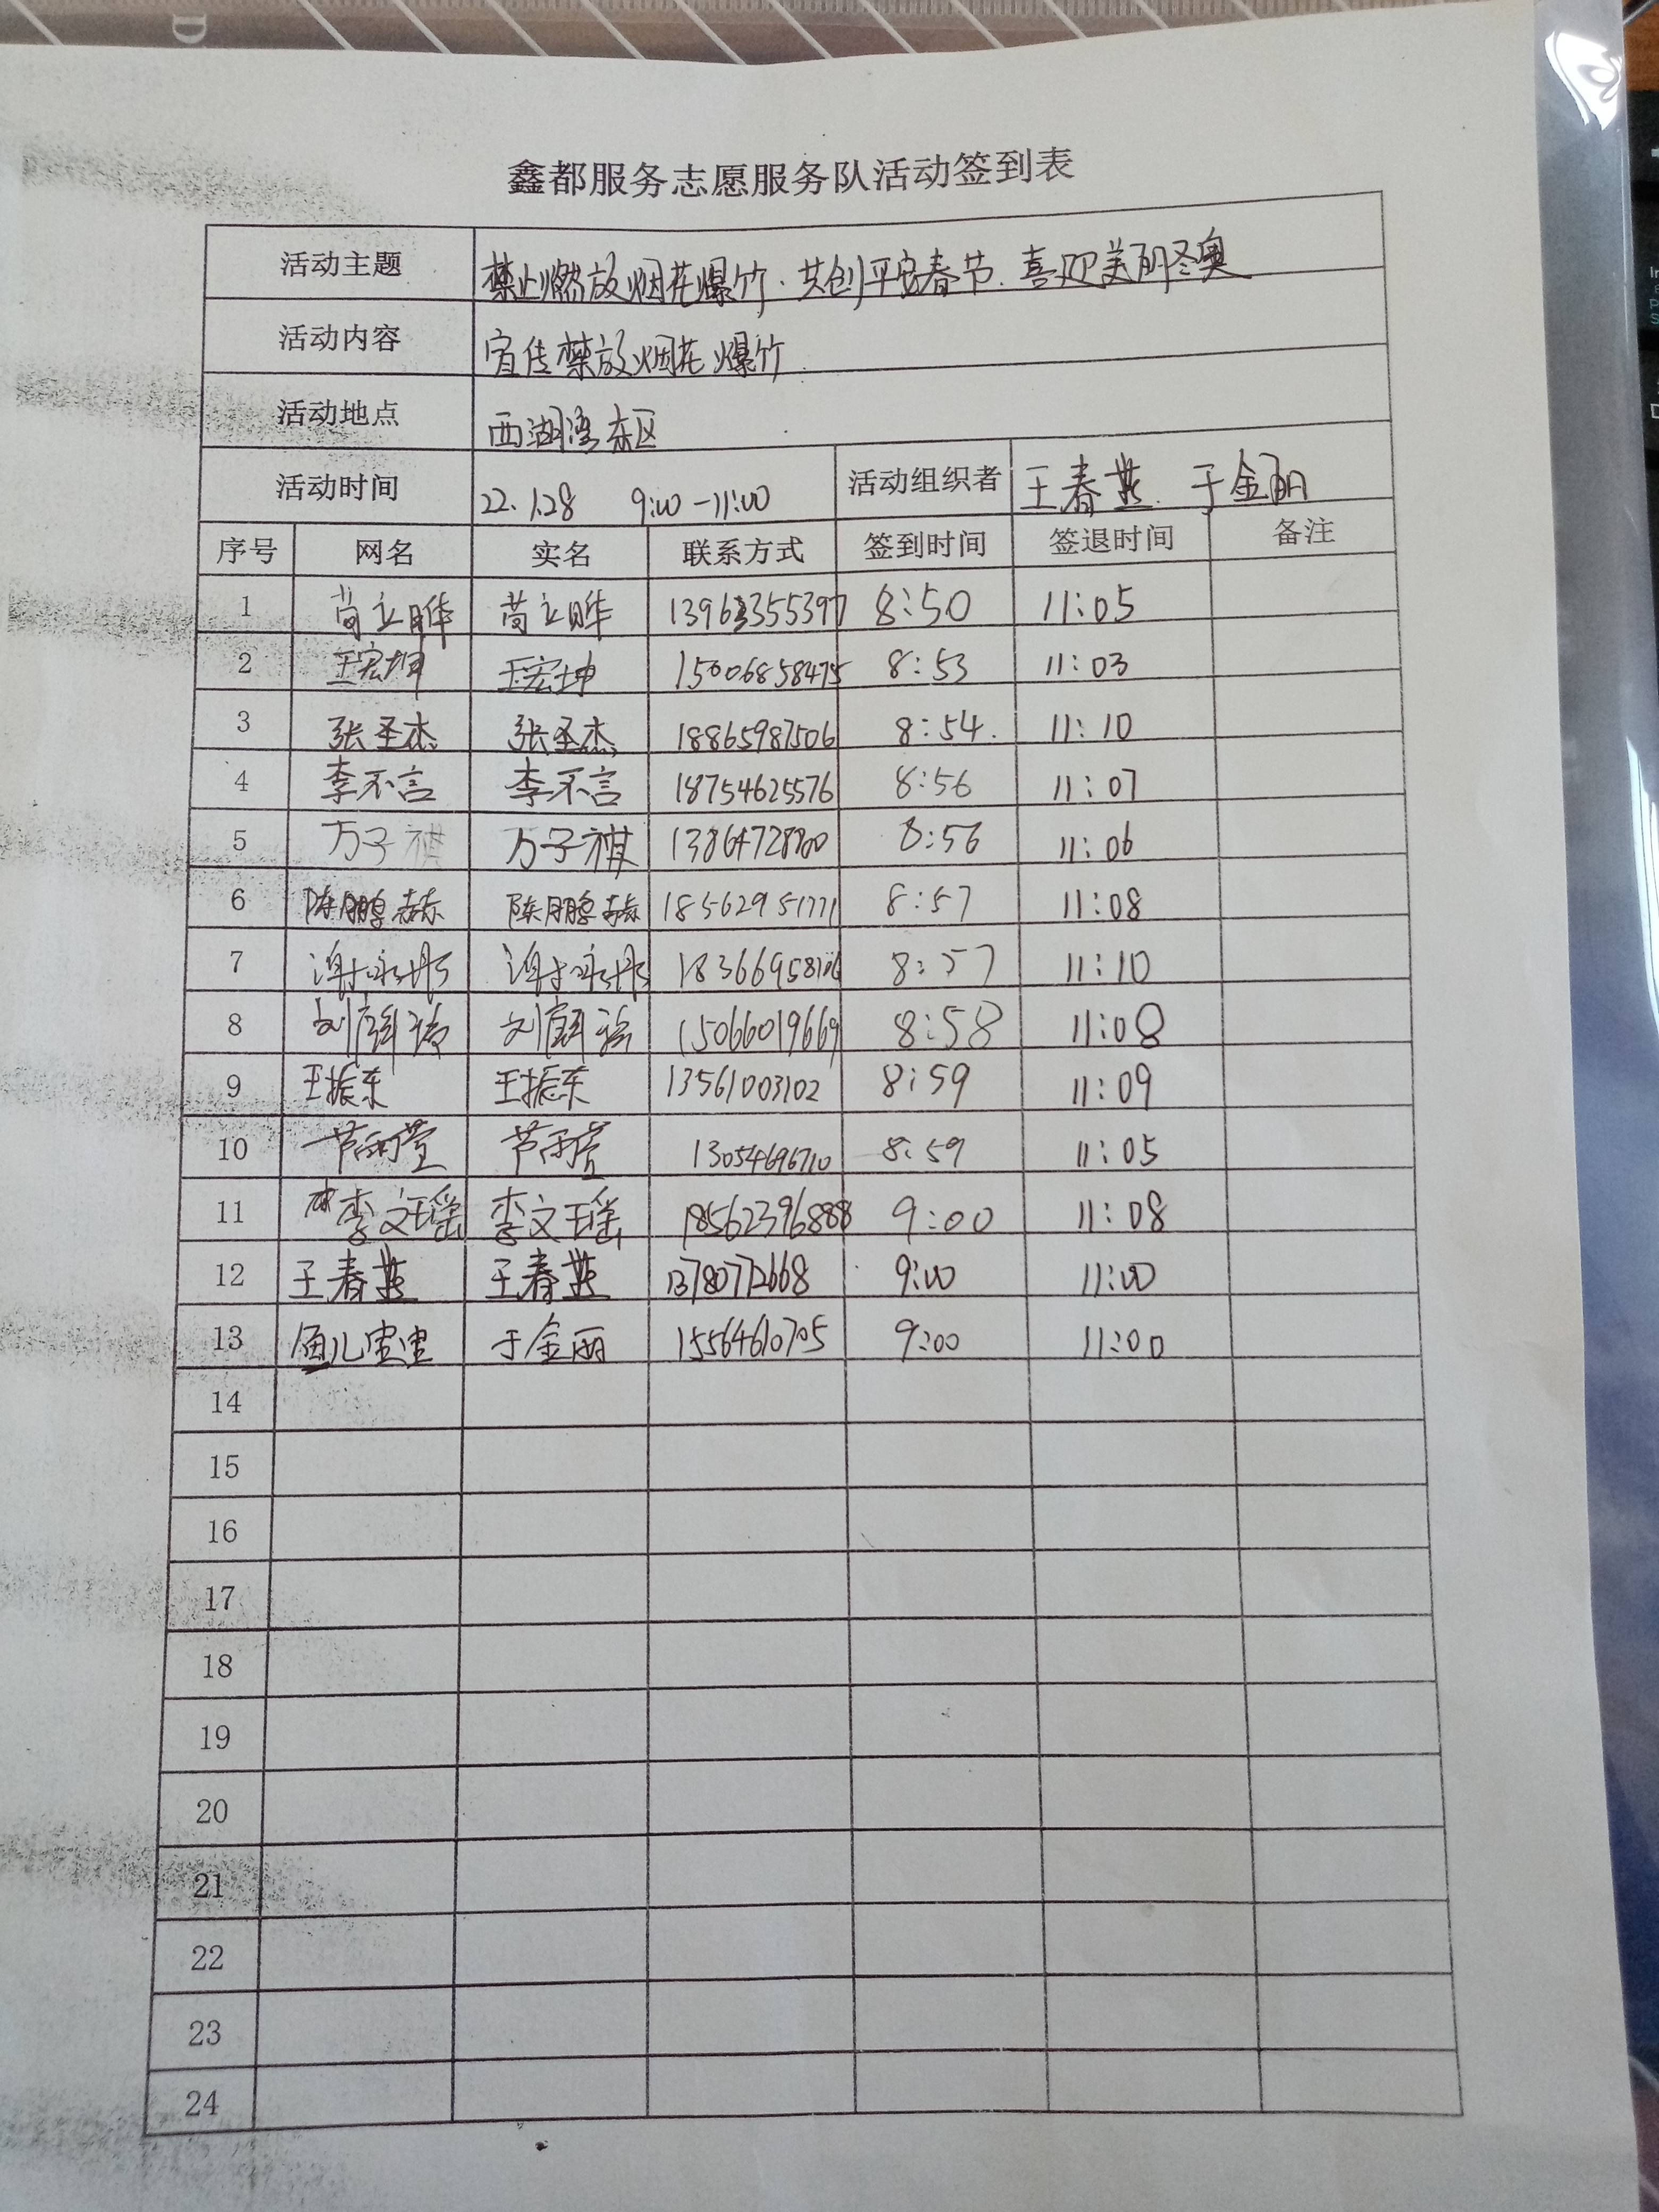 鑫都服务志愿服务队活动签到表
活动主题 禁止燃放烟花爆竹.共创平安春节.喜迎美丽冬奥
活动内容 宣传禁放烟花爆竹
活动地点 西湖湾东区
活动时间 22.1.28 9:00-11:00 活动组织者 王春燕 于金丽
序号 网名 实名 联系方式 签到时间 签退时间 备注
1 苘立晔 苘立晔 13963355397 8:50 11:05
2 王宏坤 王宏坤 15006858475 8:53 11:03
3 张圣杰 张圣杰 18865987506 8:54. 11:10
4 李不言 李不言 18754625576 8:56 11:07
5 万子祺 万子祺 8:56 11:06
6 陈鹏赫 陈鹏赫 18562951771 8:57 11:08
7 8:57 11:10
8 15066019669 8:58 11:08
9 王振东 王振东 13561003102 8:59 11:09
10 芦雨萱 芦雨萱 13054696710 8:59 11:05
11 李文瑶 李文瑶 18562396888 9:00 11:08
12 王春燕 王春燕 13780772668 9:00 11:00
13 鱼儿宝宝 于金丽 15564610705 9:00 11:00
14
15
16
17
18
19
20
21
22
23
24
D